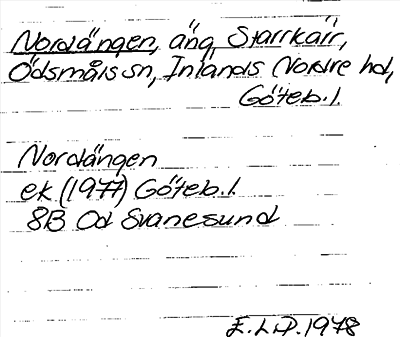 Nordängen, äng Starrkärr,
Ödsmåls sn, Inlands Nordre hd,
Göteb. l.
Nordängen
ek (1977) Göteb. l.
8B Od Svanesund
E.L.D. 1978